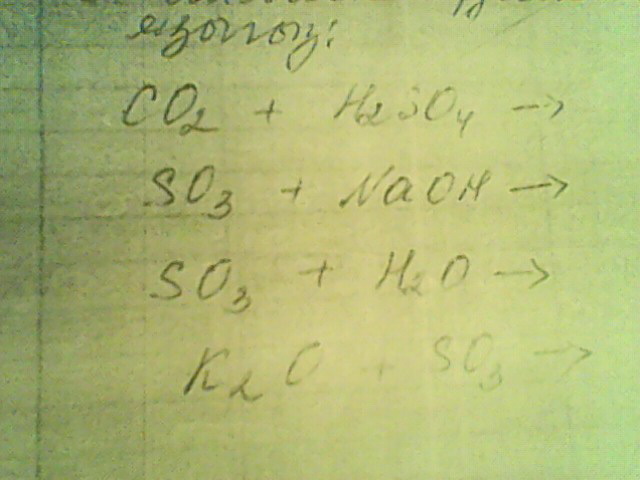 CO₂ + H₂SO₄ →
SO₃ + NaOH →
SO₃ + H₂O →
K₂O + SO₃ →